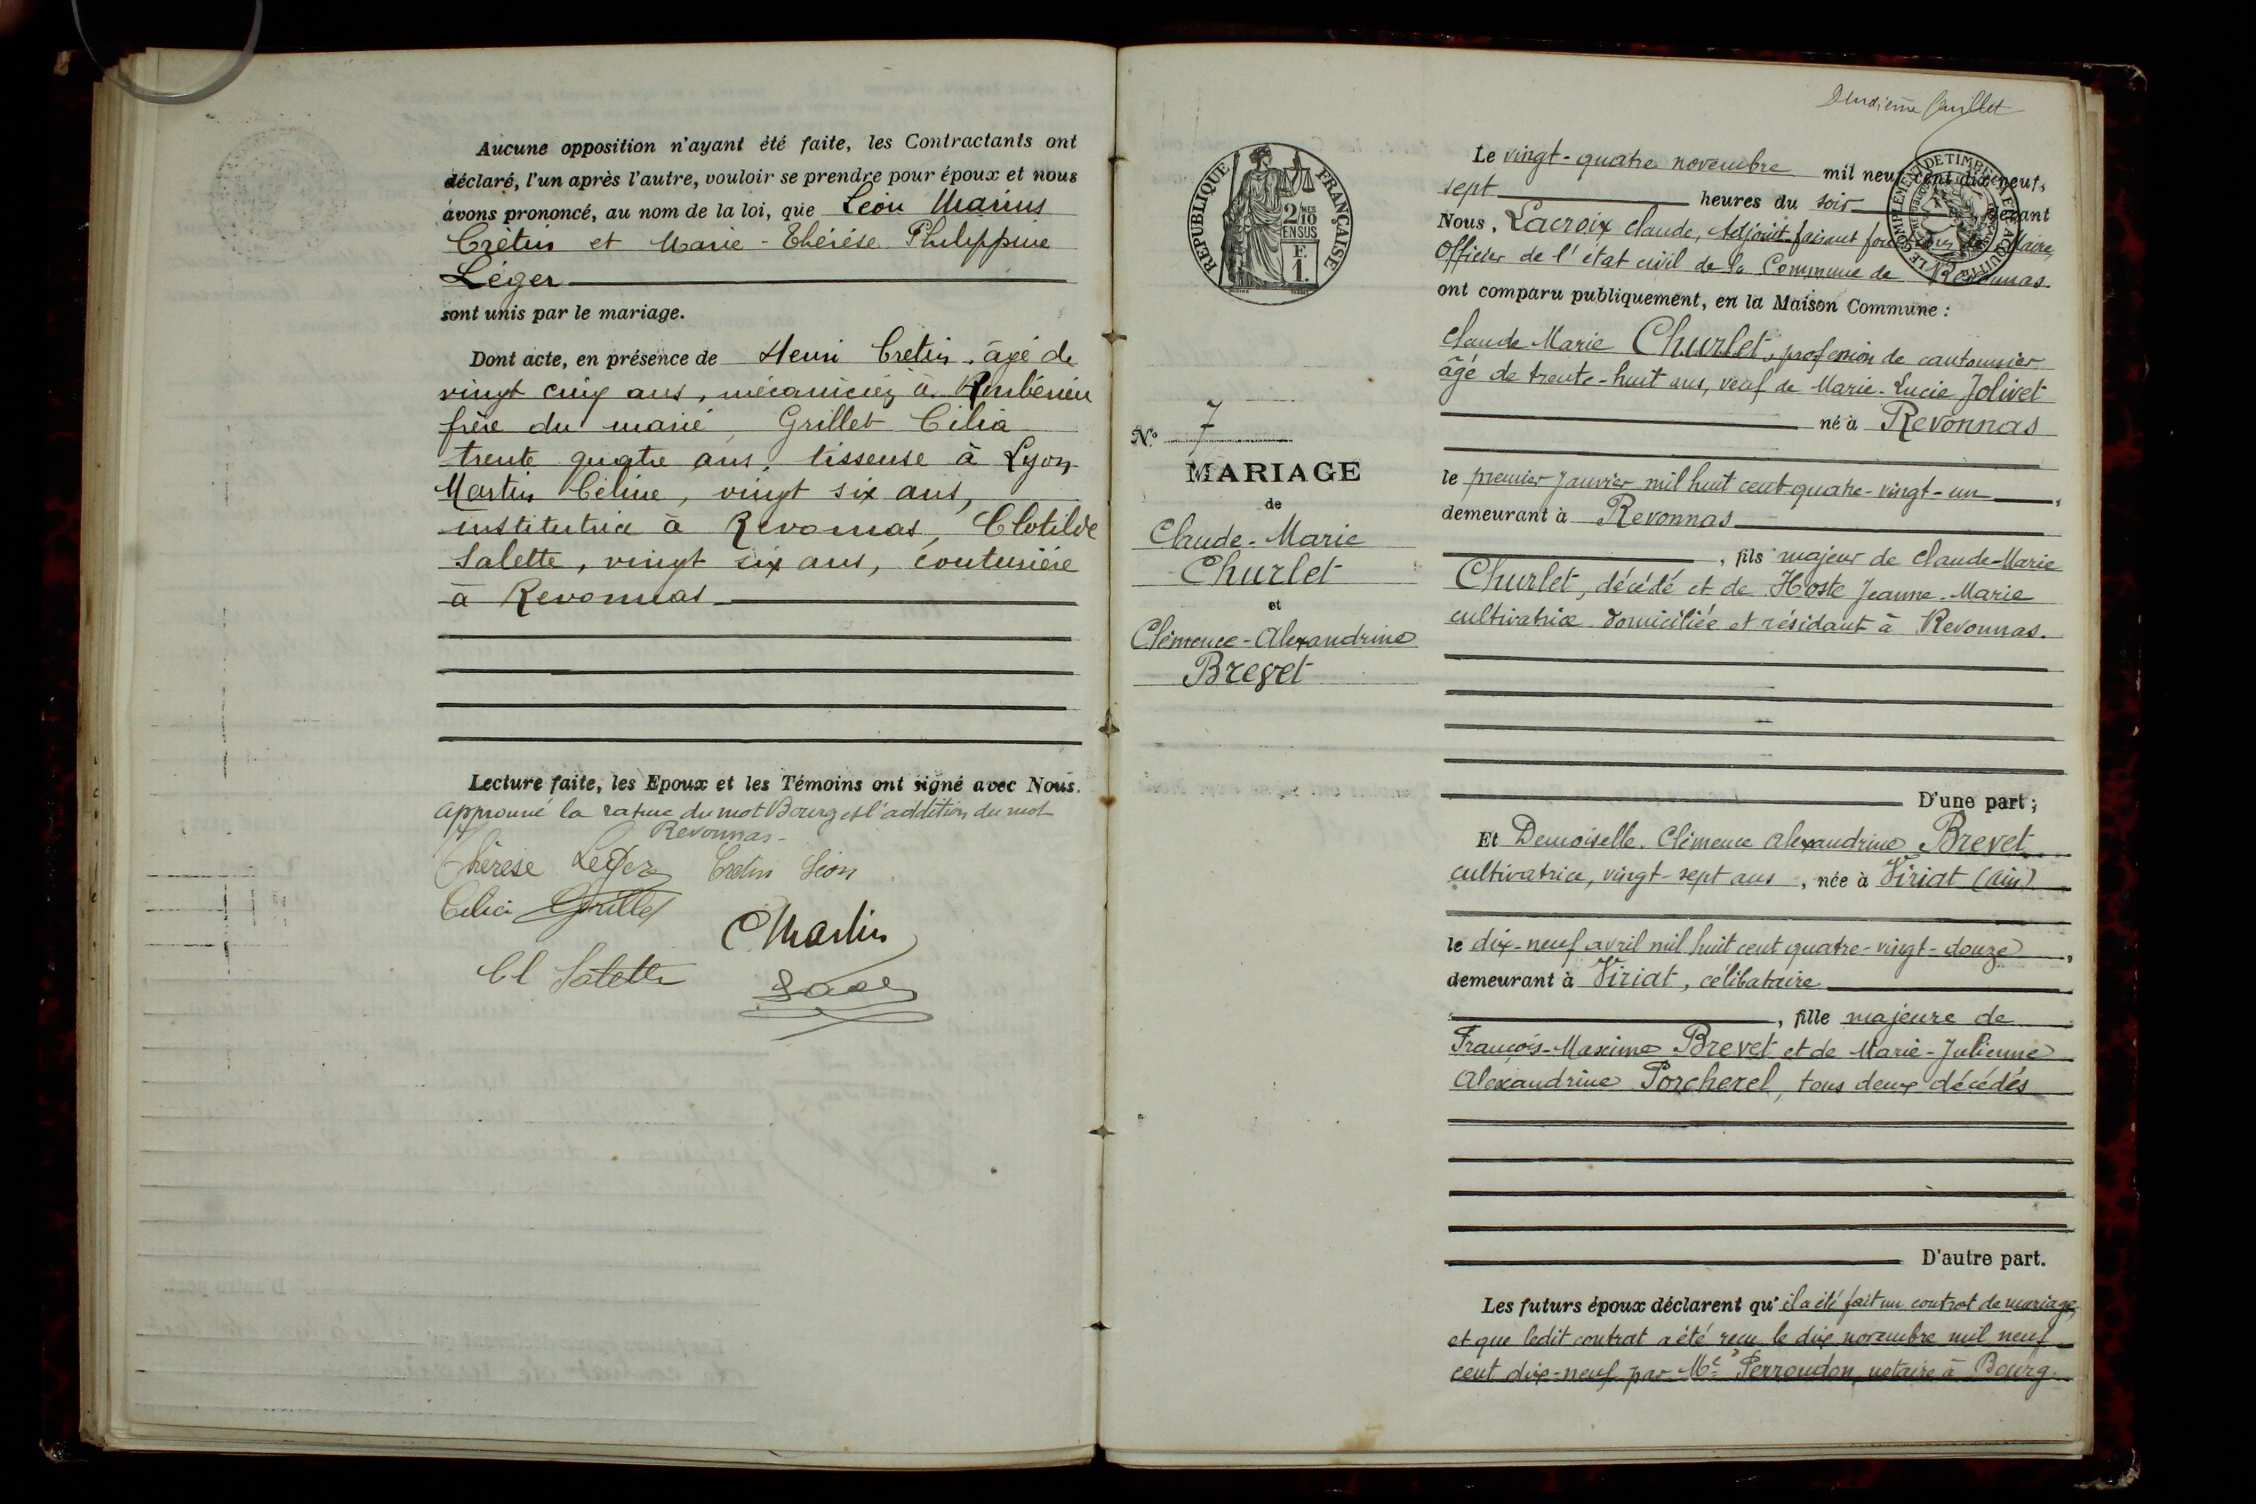 Aucune opposition n'ayant été faite, les Contractants ont
déclaré, l'un après l'autre, vouloir se prendre pour époux et nous
avons prononcé, au nom de la loi, que Léon Marius
Crétin et Marie-Thérèse Philippine
Léger
sont unis par le mariage.
Dont acte, en présence de Henri Cretin, âgé de
vingt cinq ans, mécanicien à Ambérieu
frère du marié, Grillet Cilia
trente quatre ans, tisseuse à Lyon
Martin Céline, vingt six ans,
institutrice à Revonnas, Clotilde
Salette, vingt six ans, couturière
à Revonnas
Lecture faite, les Epoux et les Témoins ont signé avec Nous.
approuvé la rature du mot Bourg et l'addition du mot
Revonnas-
Thérèse Leger Cretin Léon
Cilia Grillet
C Martin
Cl Salette
Deuxième feuillet
RÉPUBLIQUE FRANÇAISE
2/10 EN SUS
F. 1.
COMPLEMENT DE TIMBRE
Le vingt-quatre novembre mil neuf cent dix-neuf,
sept heures du soir, devant
Nous, Lacroix Claude, Adjoint faisant fonctions de Maire,
Officier de l'état civil de la Commune de Revonnas
ont comparu publiquement, en la Maison Commune :
Claude Marie Churlet, profession de cantonnier
âgé de trente-huit ans, veuf de Marie-Lucie Jolivet
né à Revonnas
le premier Janvier mil huit cent quatre-vingt-un,
demeurant à Revonnas
, fils majeur de Claude-Marie
Churlet, décédé et de Hoste Jeanne-Marie
cultivatrice domiciliée et résidant à Revonnas.
D'une part ;
N.º 7
MARIAGE
de
Claude-Marie
Churlet
et
Clémence-Alexandrine
Brevet
Et Demoiselle Clémence Alexandrine Brevet
cultivatrice, vingt-sept ans, née à Viriat (Ain)
le dix-neuf avril mil huit cent quatre-vingt-douze,
demeurant à Viriat, célibataire
, fille majeure de
François-Maxime Brevet et de Marie-Julienne
Alexandrine Porcherel, tous deux décédés
D'autre part.
Les futurs époux déclarent qu'il a été fait un contrat de mariage,
et que ledit contrat a été reçu le dix novembre mil neuf
cent dix-neuf par Me Perroudon, notaire à Bourg.